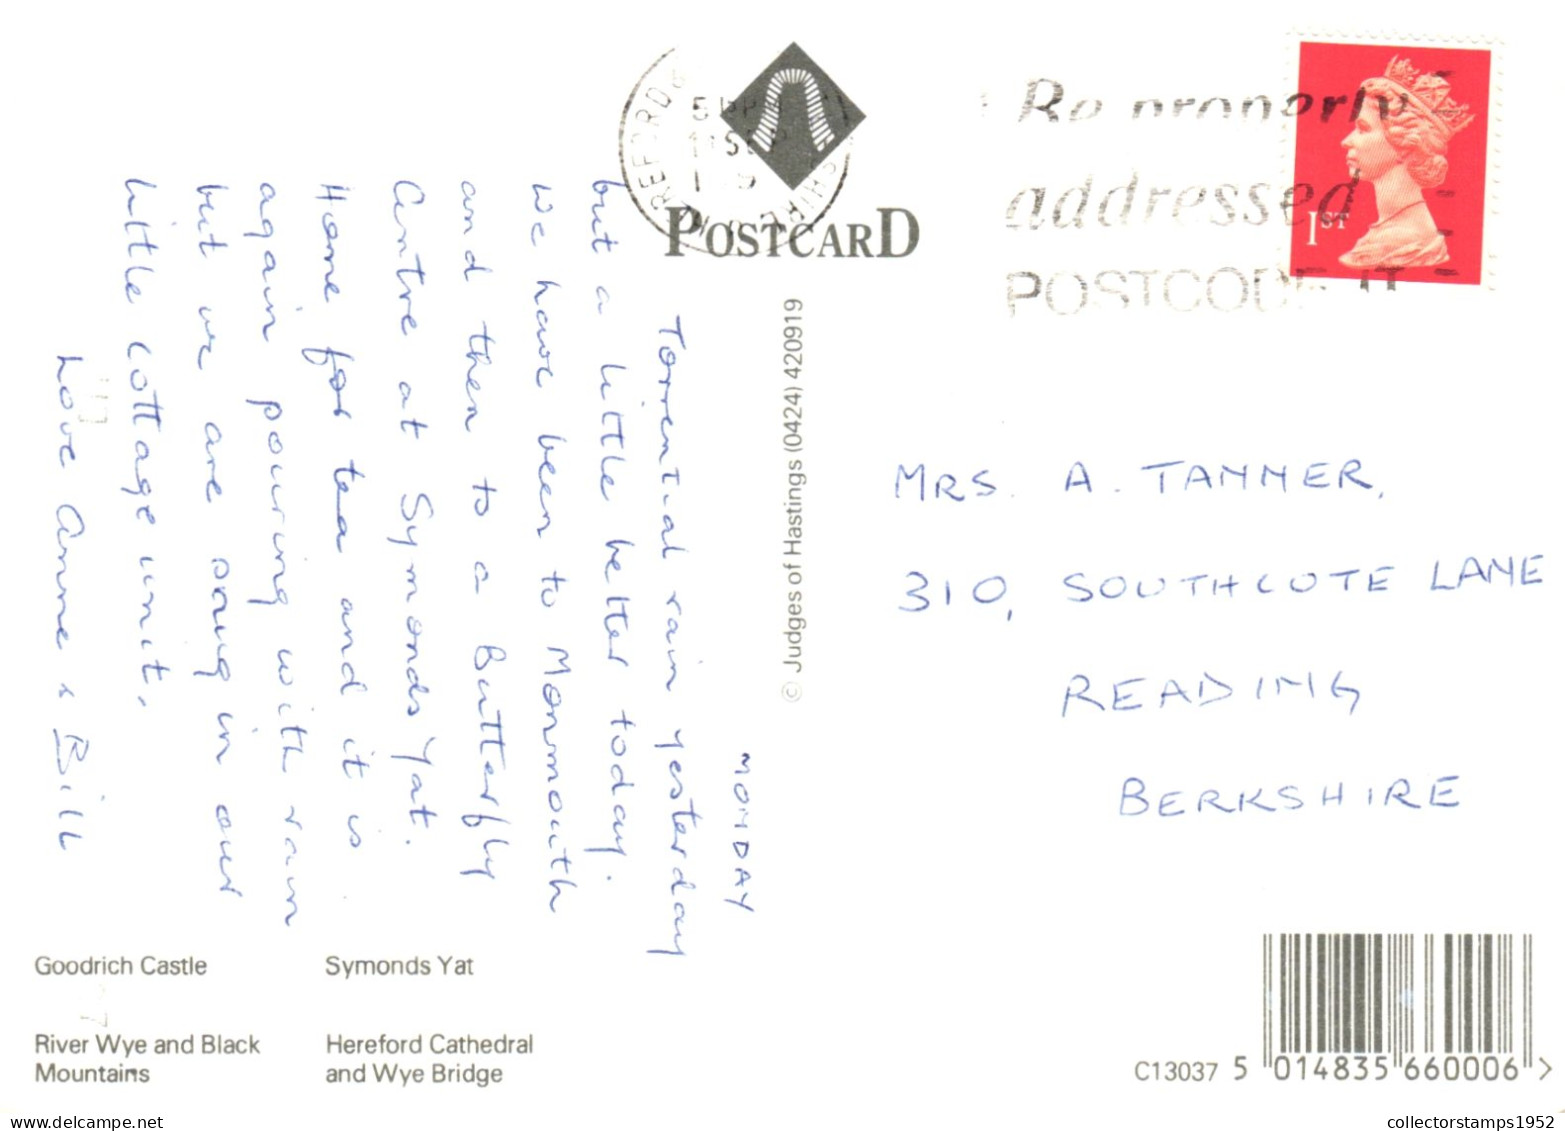 POSTCARD
Be properly
addressed
POSTCODE IT
1ST
MONDAY
Torrential rain yesterday
but a little better today.
We have been to Monmouth
and then to a Butterfly
Centre at Symonds Yat.
Home for tea and it is
again pouring with rain
but we are snug in our
little cottage unit.
Love Anne & Bill
© Judges of Hastings (0424) 420919
MRS. A. TANNER,
310, SOUTHCOTE LANE
READING
BERKSHIRE
Goodrich Castle
Symonds Yat
River Wye and Black
Mountains
Hereford Cathedral
and Wye Bridge
C13037 5 014835 660006 >
www.delcampe.net
collectorstamps1952